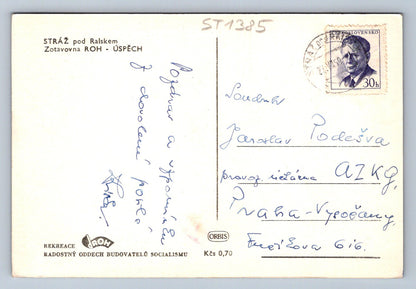 ST1385
STRÁŽ pod Ralskem
Zotavovna ROH - ÚSPĚCH
ČESKOSLOVENSKO
30 h
Pozdrav a vzpomínku
z dovolené posílá
Soudruh
Jaroslav Podešva
provoz. účtárna AZKG,
Praha-Vysočany,
Fučíkova 616.
REKREACE ROH
RADOSTNÝ ODDECH BUDOVATELŮ SOCIALISMU
ORBIS
Kčs 0,70